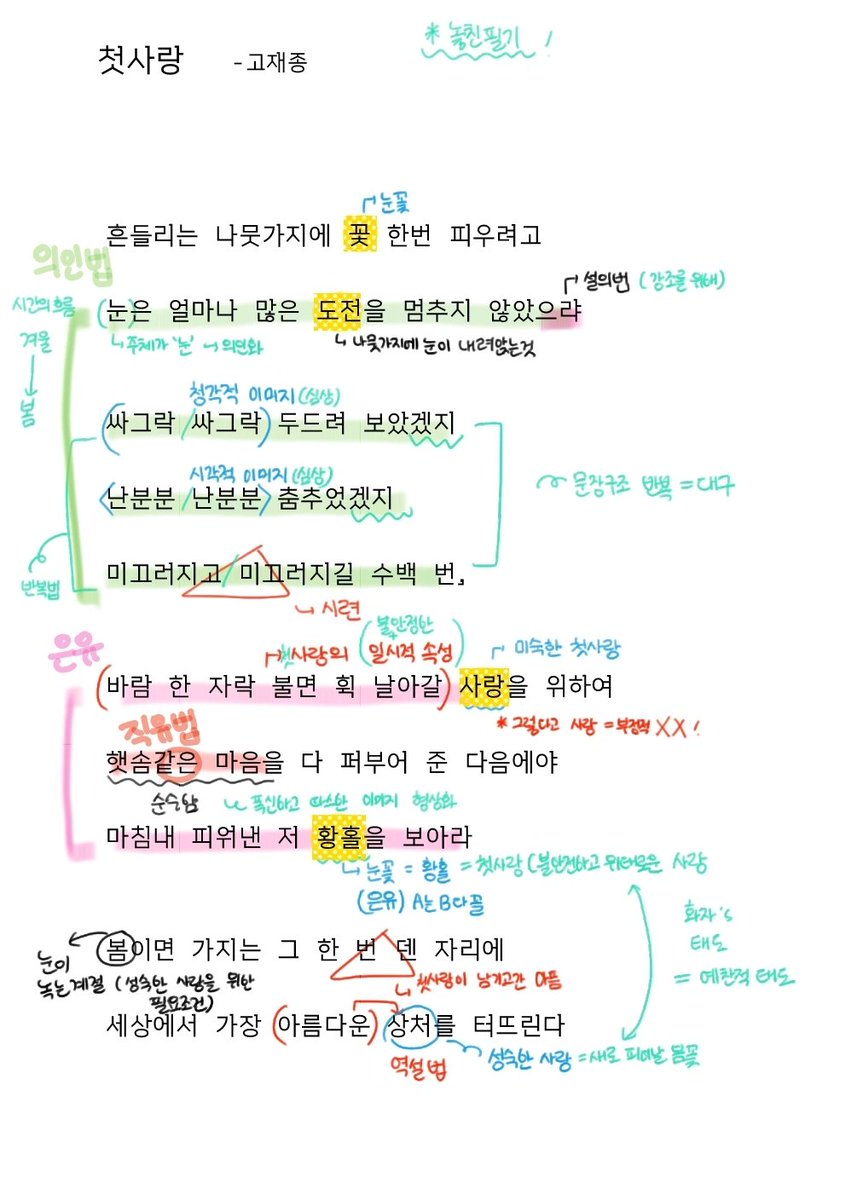 첫사랑 - 고재종
* 놓친필기!
눈꽃
흔들리는 나뭇가지에 꽃 한번 피우려고
의인법
설의법 (강조를 위해)
시간의 흐름
(눈)은 얼마나 많은 도전을 멈추지 않았으랴
겨울
주체가 '눈' → 의인화
나뭇가지에 눈이 내려앉는것
봄
청각적 이미지 (심상)
(싸그락 / 싸그락) 두드려 보았겠지
시각적 이미지 (심상)
문장구조 반복 = 대구
<난분분 / 난분분> 춤추었겠지
미끄러지고 / 미끄러지길 수백 번,
반복법
시련
은유
불안정한
+
첫사랑의 (일시적 속성)
미숙한 첫사랑
(바람 한 자락 불면 휙 날아갈) 사랑을 위하여
* 그렇다고 사랑 = 부정적 XX!
직유법
햇솜같은 마음을 다 퍼부어 준 다음에야
순수함
폭신하고 따스한 이미지 형상화
마침내 피워낸 저 황홀을 보아라
눈꽃 = 황홀 = 첫사랑 (불안전하고 위태로운 사랑
(은유) A는 B다 꼴
화자's
태도
= 예찬적 태도
봄이면 가지는 그 한 번 덴 자리에
눈이
녹는계절 (성숙한 사랑을 위한
필요조건)
첫사랑이 남기고간 아픔
세상에서 가장 (아름다운) 상처를 터뜨린다
역설법
성숙한 사랑 = 새로 피어날 봄꽃